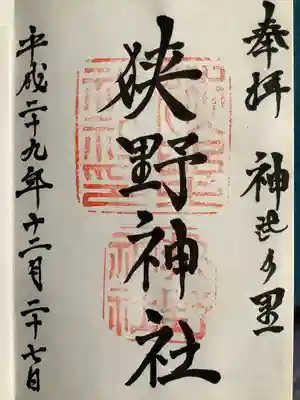 奉拝 神武の里
狭野神社
平成二十九年十二月二十七日